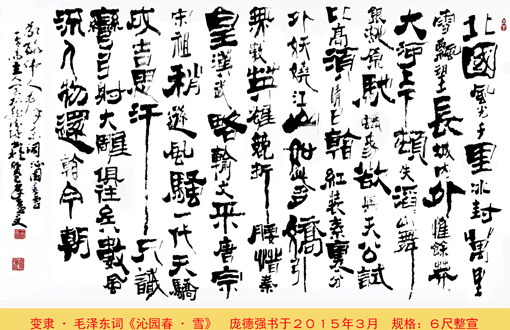 北國風光千里冰封萬里
雪飄望長城内外惟餘莽
大河上下頓失滔山舞
銀蛇原馳蠟象欲與天公試
比高須晴日看紅裝素裹分
外妖嬈江山如此多嬌引
無數英雄競折腰惜秦
皇漢武略輸文采唐宗
宋祖稍遜風騷一代天驕
成吉思汗只識
彎弓射大雕俱往矣數風
流人物還看今朝
变隶 · 毛泽东词《沁园春 · 雪》 庞德强书于2015年3月 规格：6尺整宣